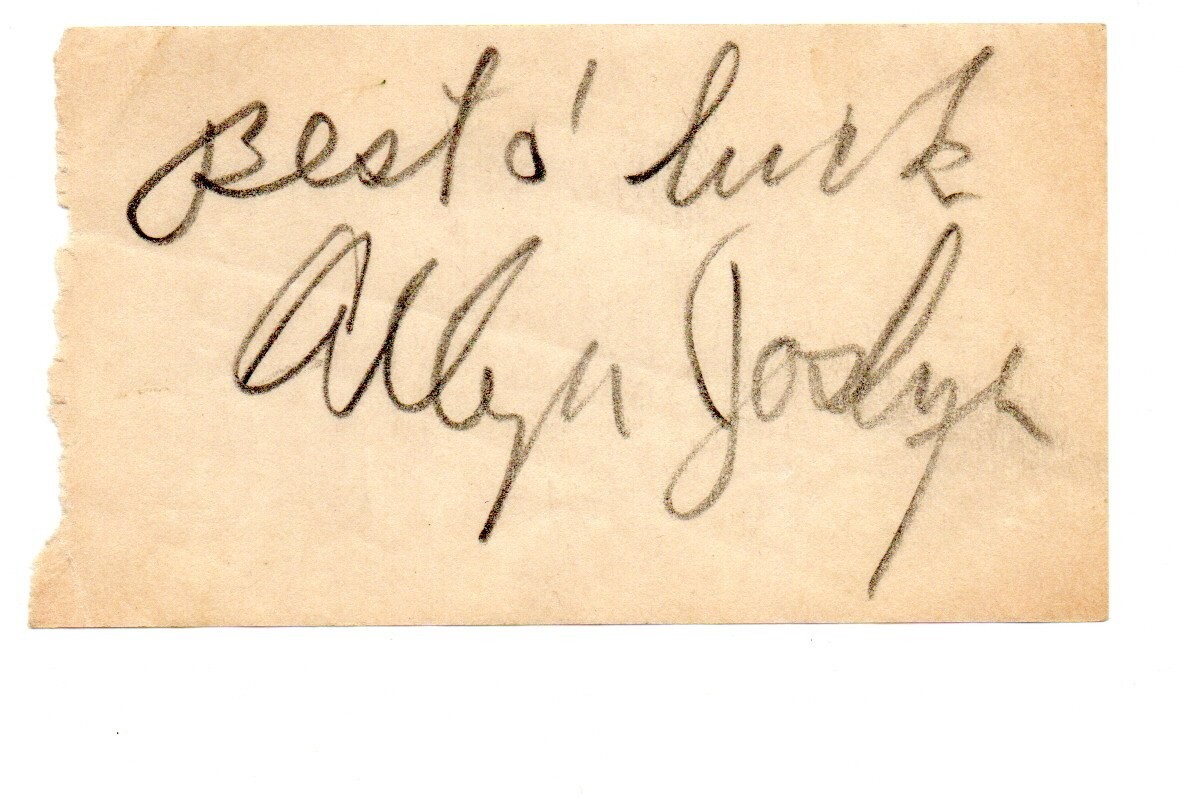 Best o' luck
Allyn Joslyn